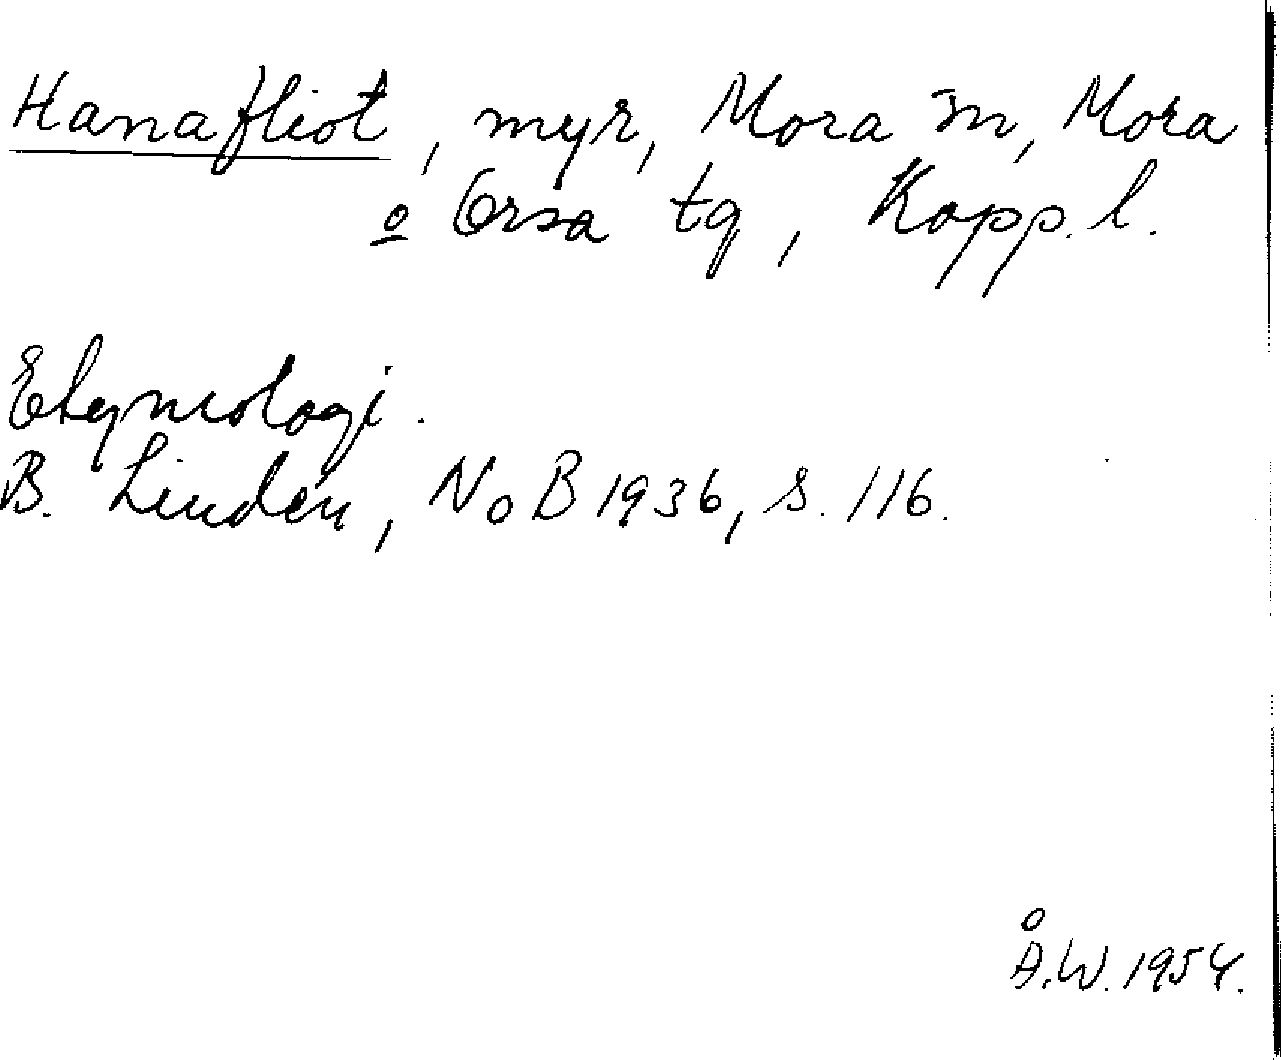 Hanafliot, myr, Mora sn, Mora
o Orsa tg, Kopp. l.
Etymologi.
B. Linden, NoB 1936, s. 116.
Å.W. 1954.